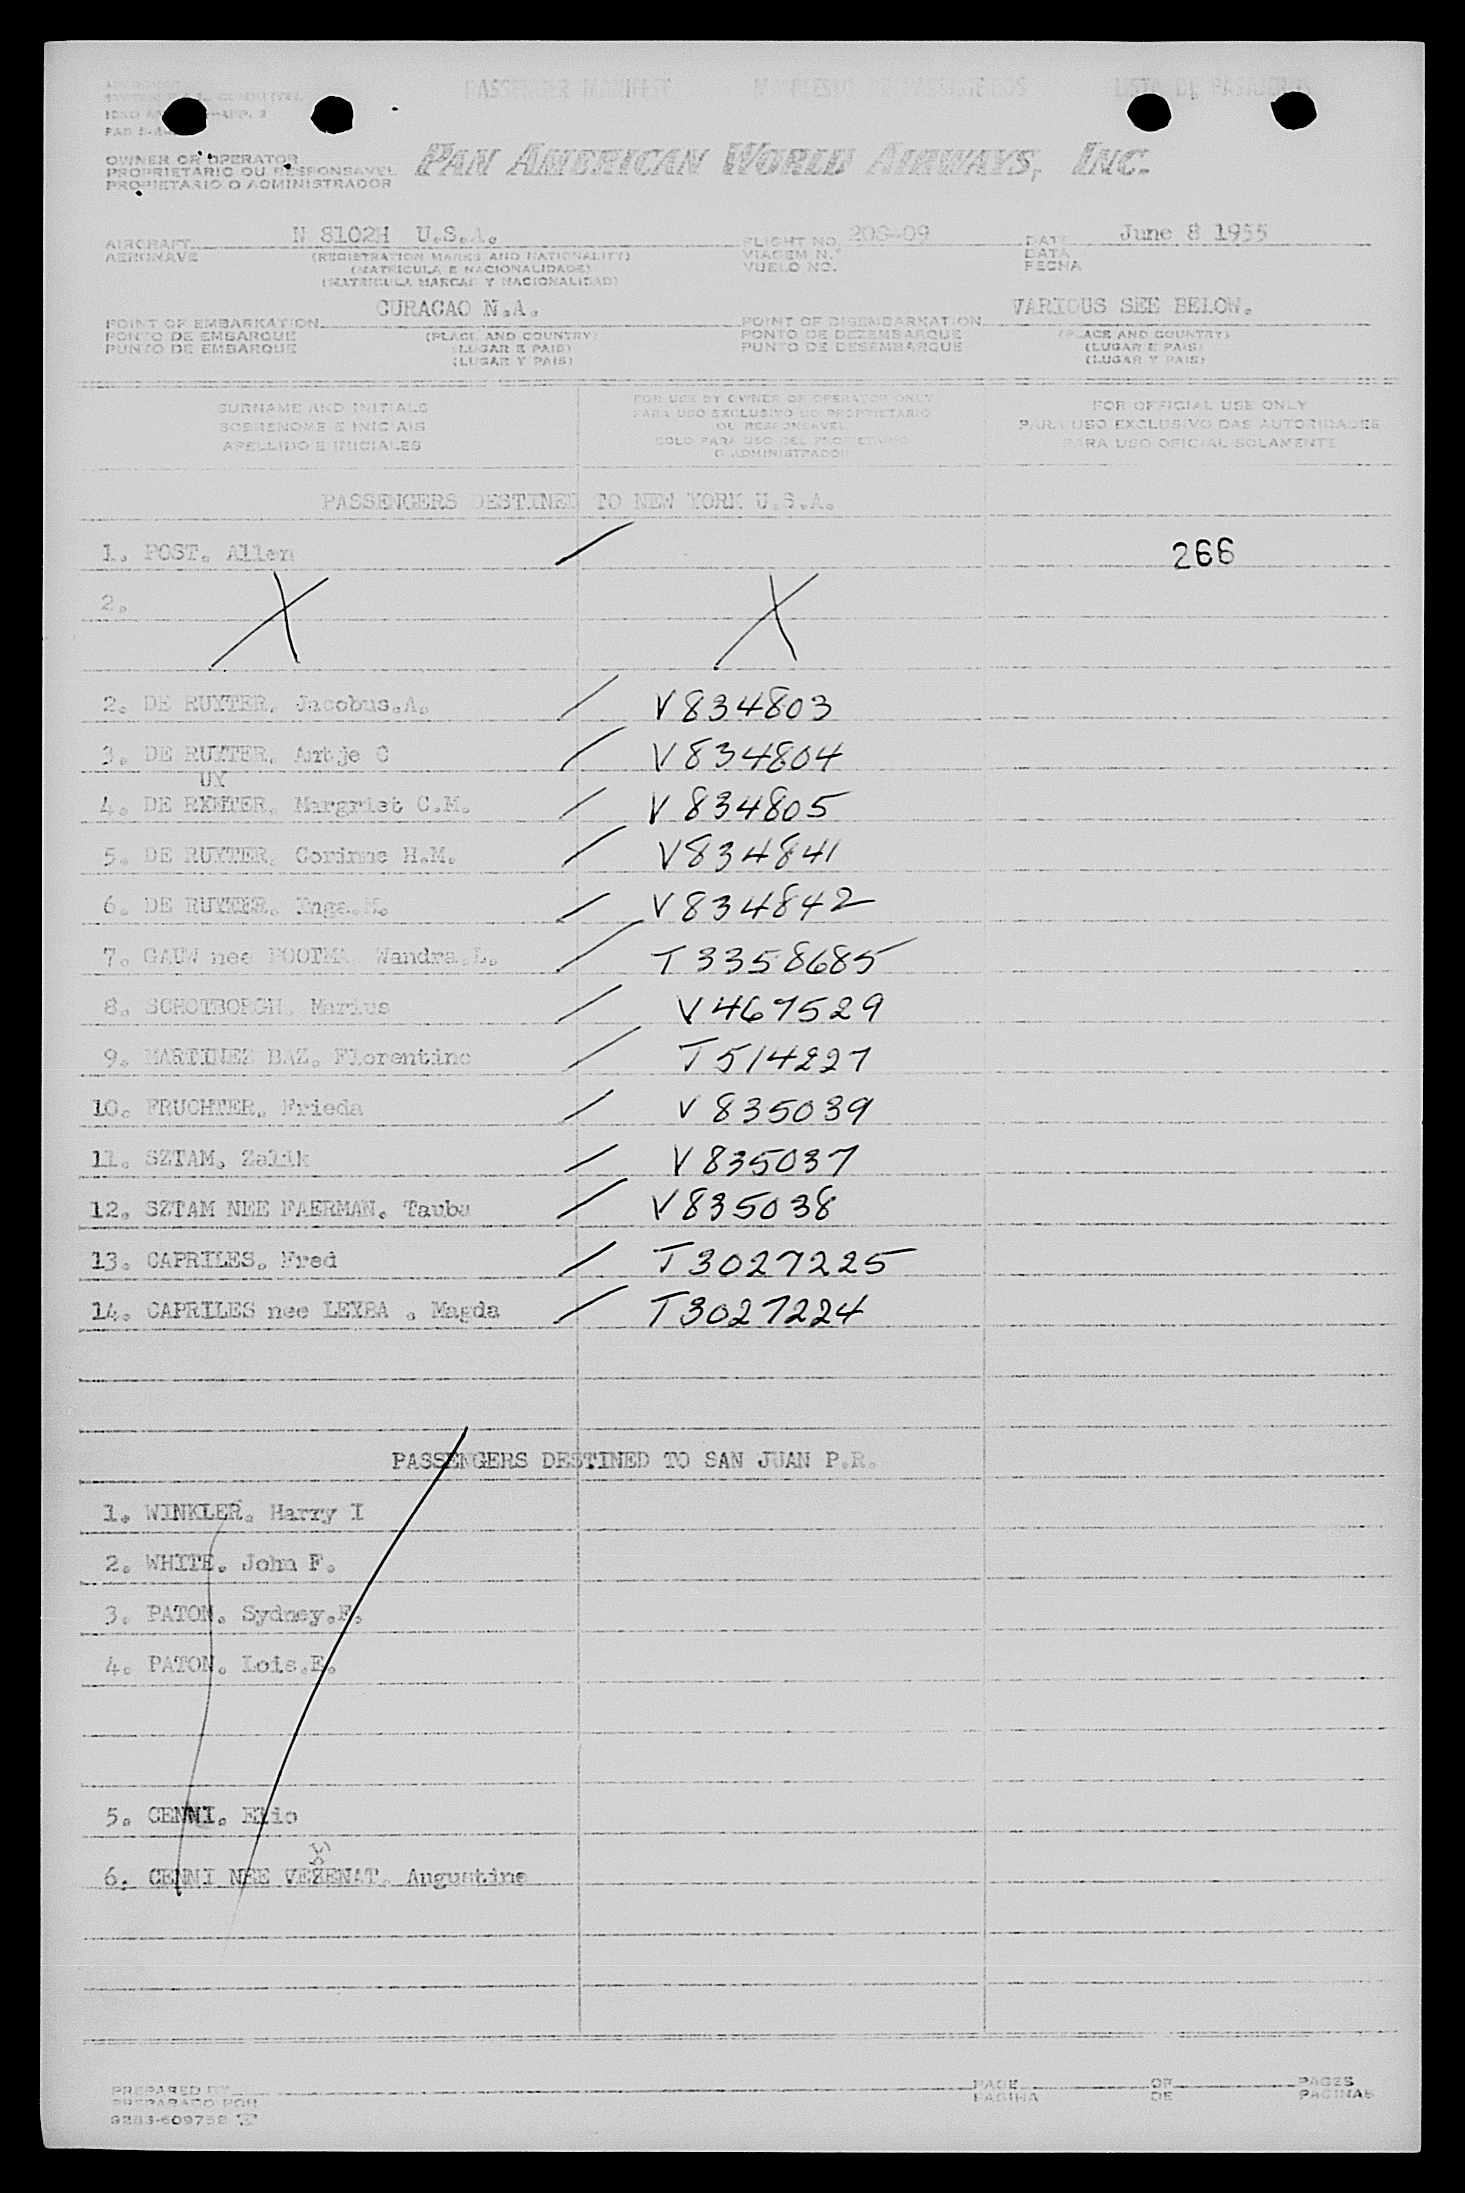 PASSENGER MANIFEST LISTA DE PASAJEROS
OWNER OR OPERATOR
PROPRIETARIO OU RESPONSAVEL
PROPIETARIO O ADMINISTRADOR
PAN AMERICAN WORLD AIRWAYS, INC.
AIRCRAFT N 8102H U.S.A. FLIGHT NO. 208-09 DATE June 8 1955
AERONAVE (REGISTRATION MARKS AND NATIONALITY) VIAGEM N.° DATA
(MATRICULA E NACIONALIDADE) VUELO NO. FECHA
(MATRICULA MARCAS Y NACIONALIDAD)
CURACAO N.A. VARIOUS SEE BELOW.
POINT OF EMBARKATION POINT OF DISEMBARKATION
PONTO DE EMBARQUE (PLACE AND COUNTRY) PONTO DE DEZEMBARQUE (PLACE AND COUNTRY)
PUNTO DE EMBARQUE (LUGAR E PAIS) PUNTO DE DESEMBARQUE (LUGAR E PAIS)
(LUGAR Y PAIS) (LUGAR Y PAIS)
SURNAME AND INITIALS FOR USE BY OWNER OR OPERATOR ONLY FOR OFFICIAL USE ONLY
SOBRENOME E INICIAIS PARA USO EXCLUSIVO DO PROPRIETARIO OU RESPONSAVEL PARA USO EXCLUSIVO DAS AUTORIDADES
APELLIDO E INICIALES SOLO PARA USO DEL PROPIETARIO O ADMINISTRADOR PARA USO OFICIAL SOLAMENTE
PASSENGERS DESTINED TO NEW YORK U.S.A.
1. POST. Allen / 266
2. X X
2. DE RUYTER. Jacobus.A. / V834803
3. DE RUYTER. Antje C / V834804
UY
4. DE RXMTER. Margriet C.M. / V834805
5. DE RUYTER. Corinne H.M. / V834841
6. DE RUYTER. Inga.M. / V834842
7. GAUW nee Wandra.L. / T3358685
8. SCHOTBORGH. Marius / V467529
9. MARTINEZ BAZ. Florentino / T514227
10. FRUCHTER. Frieda / V835039
11. SZTAM. Zelik / V835037
12. SZTAM NEE FAERMAN. Tauba / V835038
13. CAPRILES. Fred / T3027225
14. CAPRILES nee LEYBA . Magda / T3027224
PASSENGERS DESTINED TO SAN JUAN P.R.
1. WINKLER. Harry I
2. WHITE. John F.
3. PATON. Sydney.F.
4. PATON. Lois.E.
5. CENNI. Elio
6. CENNI NEE Augustine
PREPARED BY PAGE OF PAGES
PREPARADO POR PAGINA DE PAGINAS
9283-609758